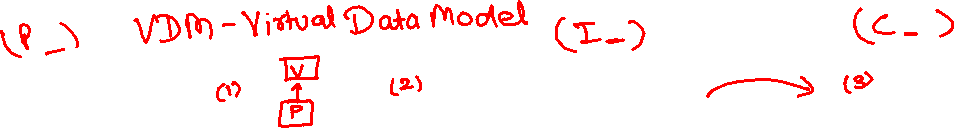 (P_) VDM-Virtual Data Model (I_) (C_)
V
(1) (2) (3)
P